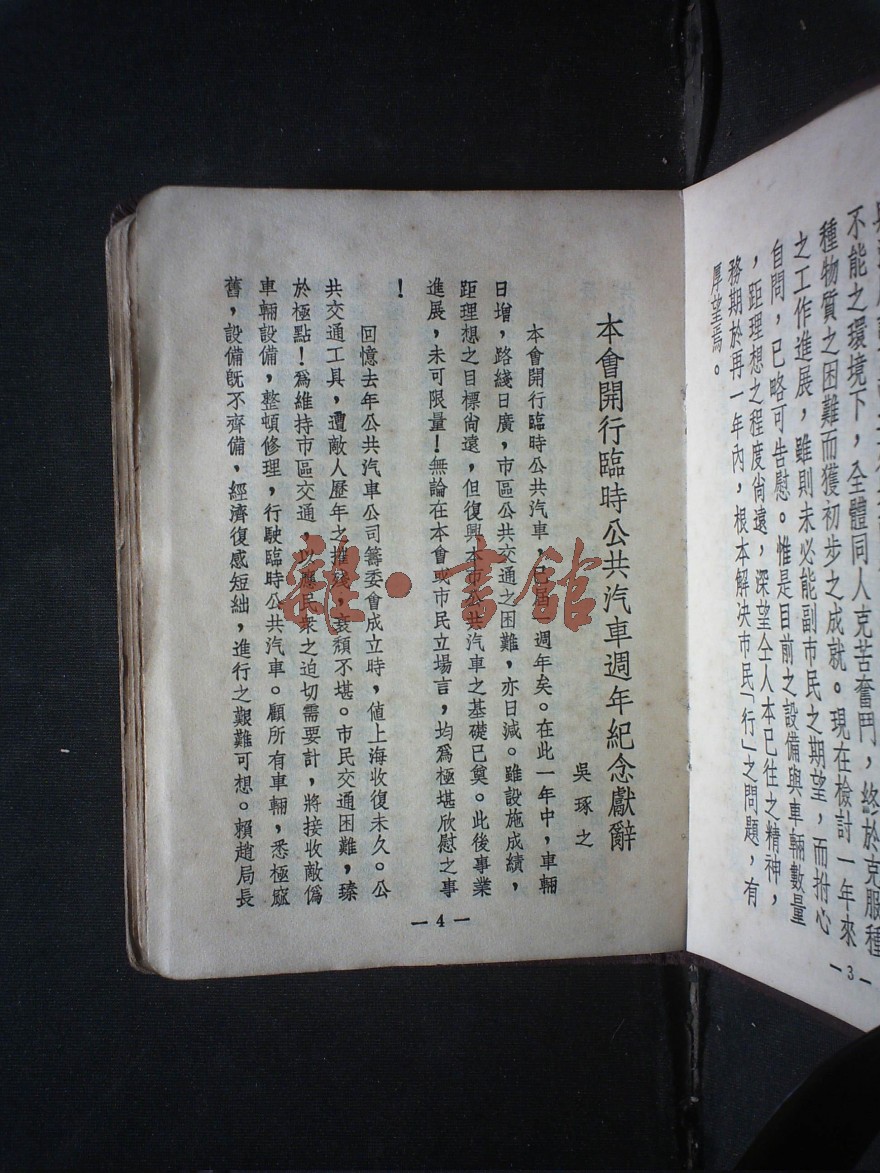 不能之環境下，全體同人克苦奮鬥，終於克服種
種物質之困難而獲初步之成就。現在檢討一年來
之工作進展，雖則未必能副市民之期望，而拊心
自問，已略可告慰。惟是目前之設備與車輛數量
，距理想之程度尙遠，深望仝人本已往之精神，
務期於再一年內，根本解决市民「行」之問題，有
厚望焉。
—3—
本會開行臨時公共汽車週年紀念獻辭
吳琢之
本會開行臨時公共汽車，已屆一週年矣。在此一年中，車輛
日增，路綫日廣，市區公共交通之困難，亦日減。雖設施成績，
距理想之目標尙遠，但復興本市公共汽車之基礎已奠。此後事業
進展，未可限量！無論在本會或市民立場言，均爲極堪欣慰之事
！
回憶去年公共汽車公司籌委會成立時，値上海收復未久。公
共交通工具，遭敵人歷年之摧殘，衰頹不堪。市民交通困難，臻
於極點！爲維持市區交通，以應民衆之迫切需要計，將接收敵僞
車輛設備，整頓修理，行駛臨時公共汽車。顧所有車輛，悉極窳
舊，設備旣不齊備，經濟復感短絀，進行之艱難可想。賴趙局長
—4—
雜·書館